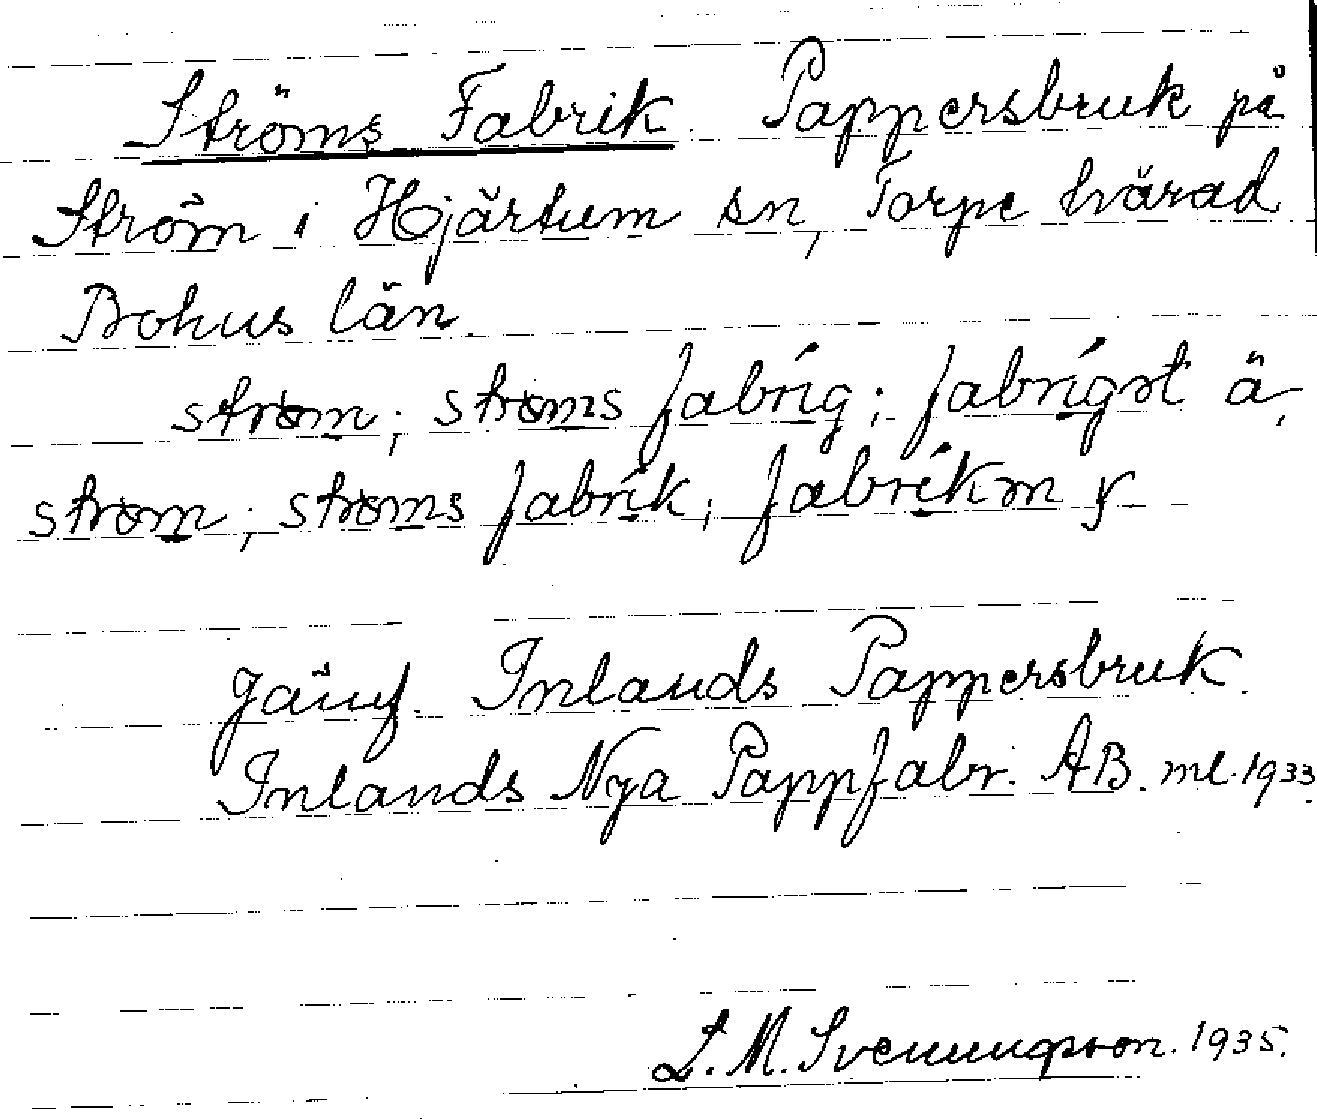 Ströms Fabrik. Pappersbruk på
Ström i Hjärtum sn, Torpe härad
Bohus län.
strøm; strøms fabrig; fabrigst ä,
strøm; strøms fabrik; fabrikm y
Jämf. Inlands Pappersbruk.
Inlands Nya Pappfabr. AB. ml. 1933.
L. M. Svenungsson. 1935.